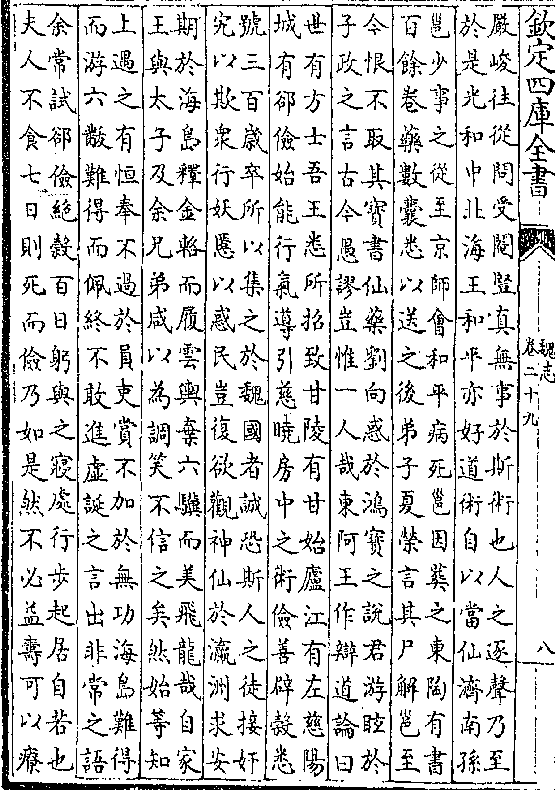 欽定四庫全書
魏志
卷二十九
八
嚴峻往從問受閹豎真無事於斯術也人之逐聲乃至
於是光和中北海王和平亦好道術自以當仙濟南孫
邕少事之從至京師會和平病死邕因葬之東陶有書
百餘卷藥數囊悉以送之後弟子夏榮言其尸解邕至
今恨不取其寶書仙藥劉向惑於鴻寶之說君游眩於
子政之言古今愚謬豈惟一人哉東阿王作辯道論曰
世有方士吾王悉所招致甘陵有甘始廬江有左慈陽
城有郤儉始能行氣導引慈曉房中之術儉善辟穀悉
號三百歲卒所以集之於魏國者誠恐斯人之徒接奸
宄以欺衆行妖慝以惑民豈復欲觀神仙於瀛洲求安
期於海島釋金輅而履雲輿棄六驥而美飛龍哉自家
王與太子及余兄弟咸以為調笑不信之矣然始等知
上遇之有恒奉不過於員吏賞不加於無功海島難得
而游六黻難得而佩終不敢進虛誕之言出非常之語
余常試郤儉絕穀百日躬與之寢處行步起居自若也
夫人不食七日則死而儉乃如是然不必益壽可以療